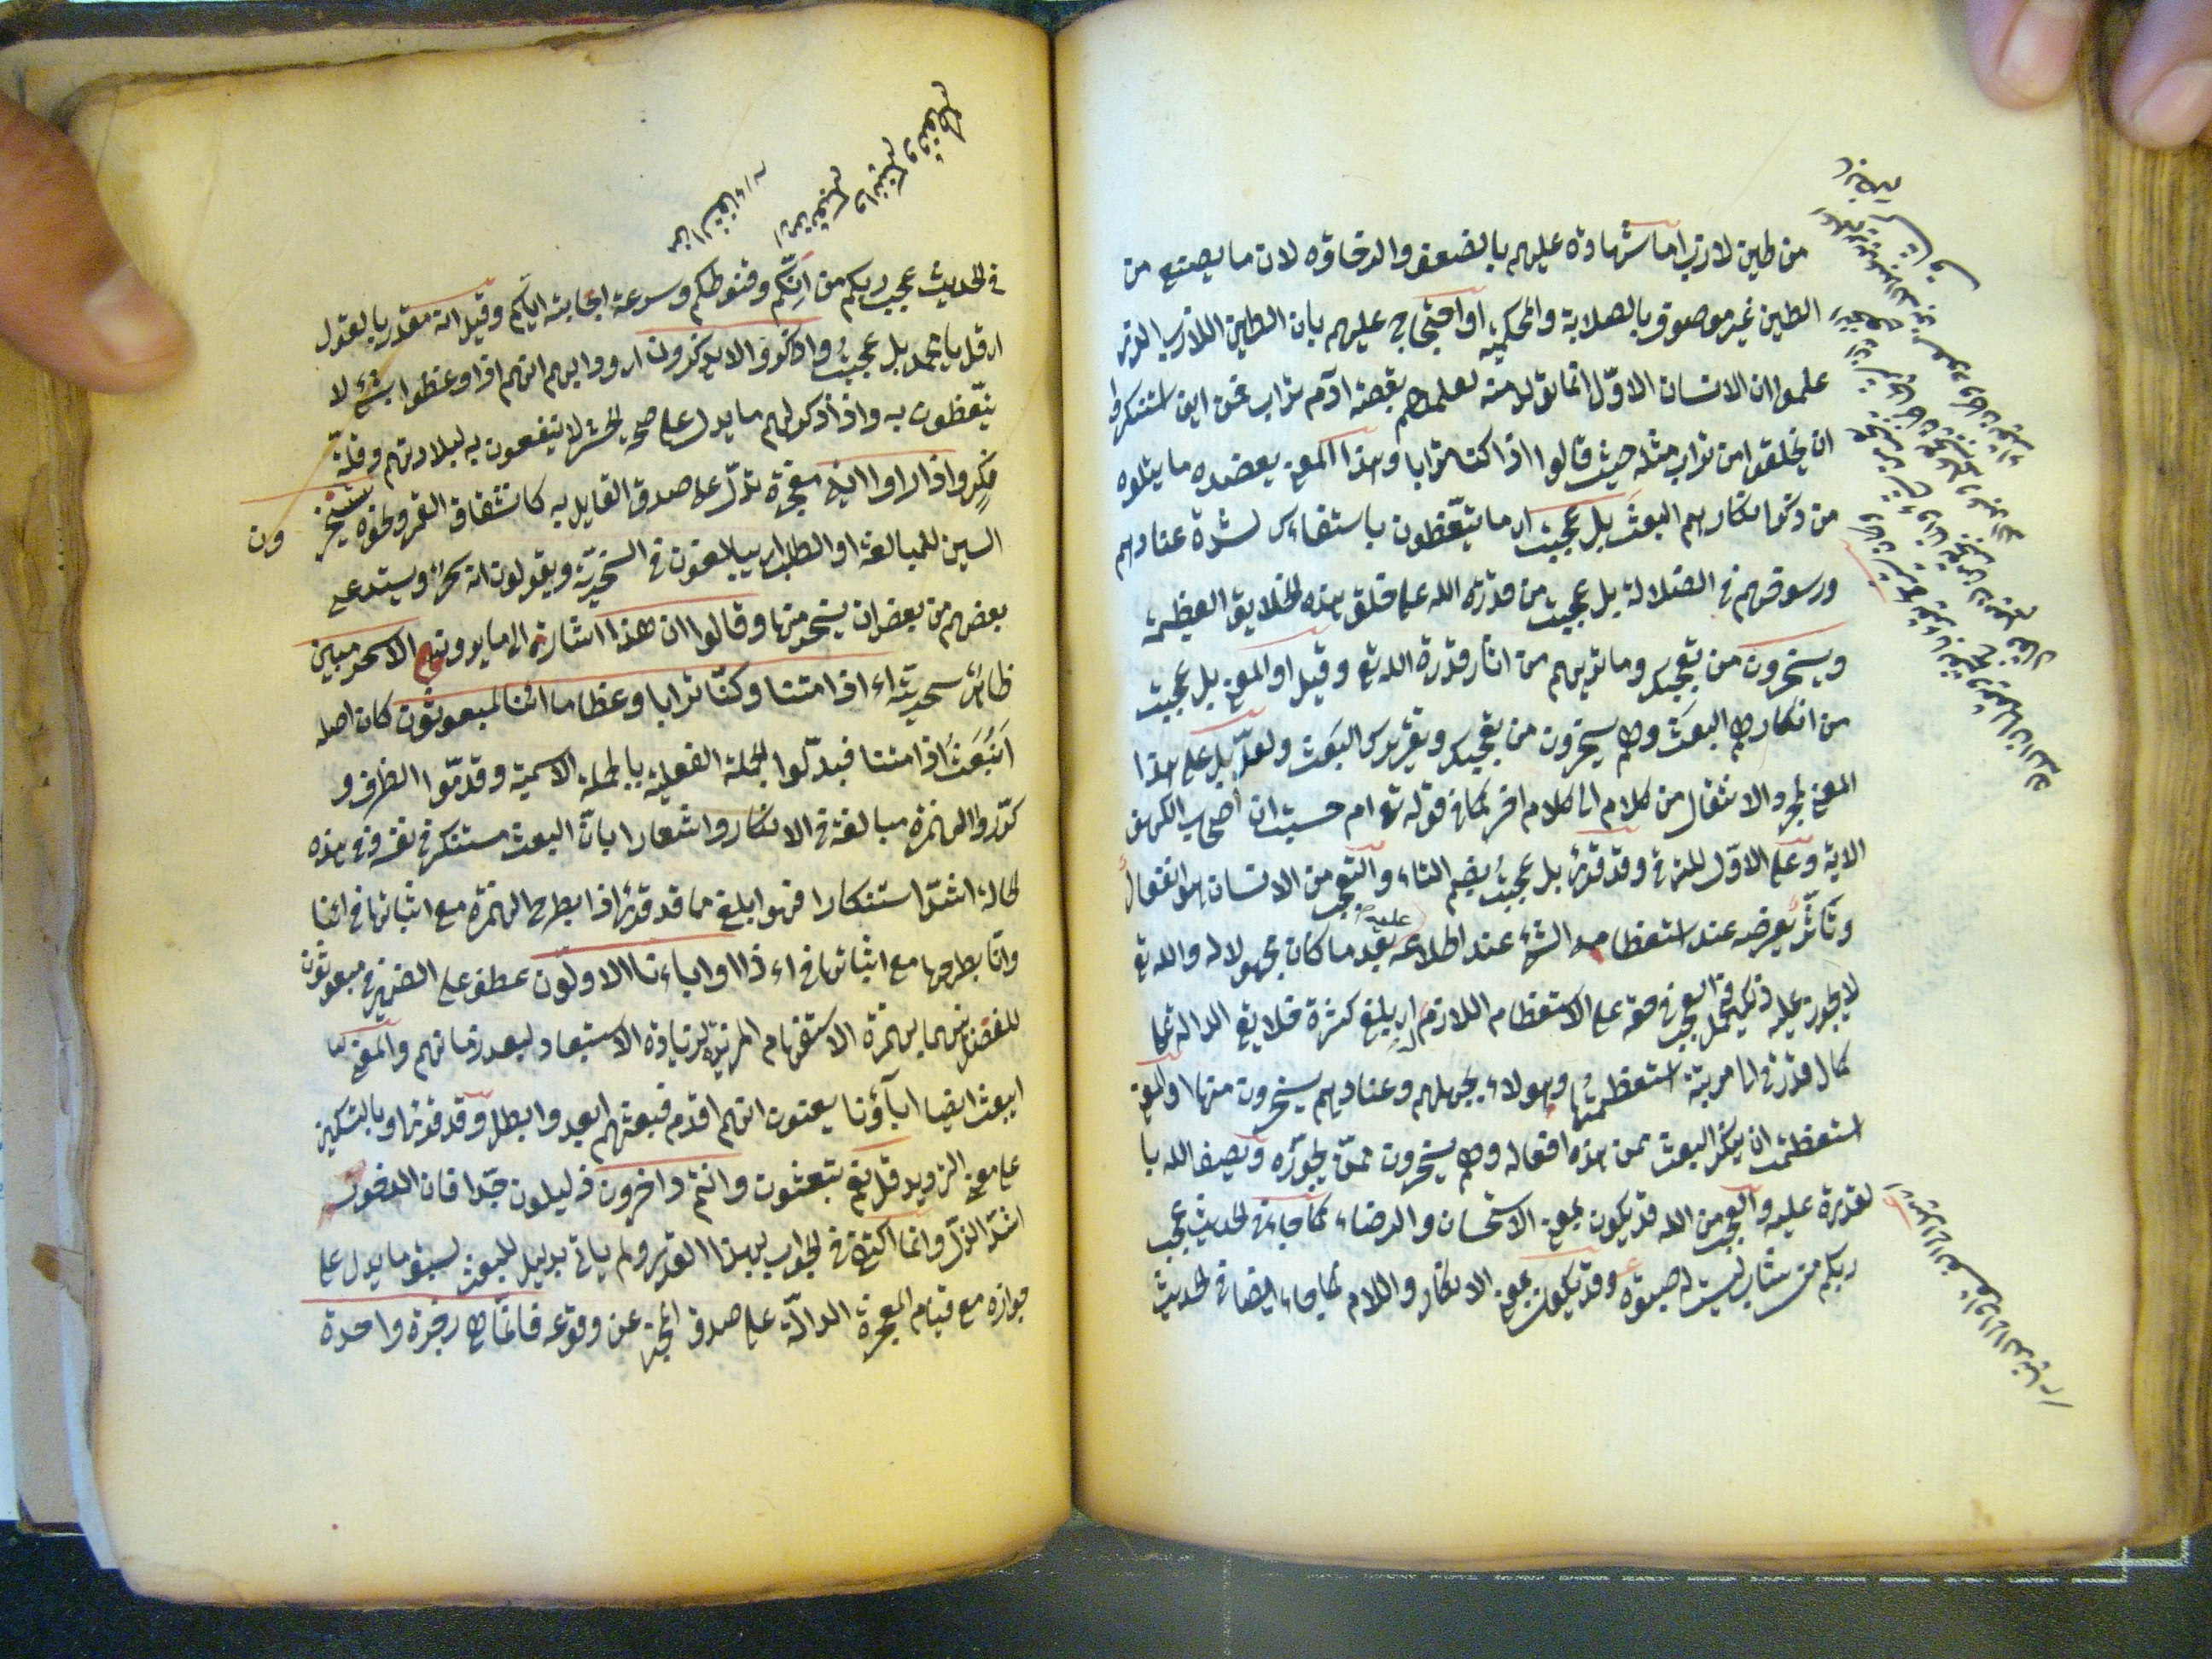 من طين لازب اما شهادة عليهم بالضعف والرخاوة لان ما يصنع من
الطين غير موصوف بالصلابة والمحكمية او احتجاج عليهم بان الطين اللازب الذي
علموا ان الانسان الاوّل انما تولد منه لعلمهم بقصة ادم تراب فمن اين استنكروا
ان يخلقوا من تراب مثله حيث قالوا اذا كنا ترابا وهذا المعنى يعضده ما يتلوه
من ذكر انكارهم البعث بل عجبت اى ما يتّعظون باستفتاءك لشدة عنادهم
ورسوخهم فى الضلالة بل عجبت من قدرة الله على خلق هذه الخلايق العظيمة
ويسخرون من تعجبك وما تريهم من اثار قدرة الله تع وقيل او المعنى بل عجبت
من انكارهم البعث وهم يسخرون من تعجبك وتقريرك البعث ولعلّ بل على هذا
المعنى لمجرد الانتقال من كلام الى كلام اخر كما فى قوله تع ام حسبت ان اصحاب الكهف
الاية وعلى الاوّل للترقى وقد قرئ بل عجبتُ بضم التاء والتعجب من الانسان هو انفعالٌ
وتأثّر يعرضه عند استعظامه الشئ عند اطلاعه عليه بعد ما كان مجهولا له والله تع
لا يجوز عليه ذلك فيحمل العجب فى حقه على الاستعظام اللازم اى بلغ كثرة خلايقى الدالة على
كمال قدرتى الى مرتبة استعظمتُها وهولاء بجهلهم وعنادهم يسخرون منها او المعنى
استعظمت ان ينكر البعث ممن هذه افعاله وهم يسخرون ممّن يجوّزه ويصف الله با
لقدرة عليه والعجب من الله قد يكون بمعنى الاستحسان والرضاء كما جاء فى الحديث عجب
ربكم من شاب ليست له صبوة وقد يكون بمعنى الانكار واللام كما جاء ايضا فى الحديث
فى الحديث عجب ربكم من اَلِّكُم وقنوطكم وسرعة اجابته اياكم وقيل انه مقدر بالقول
اى قل يا محمد بل عجبتُ واذا ذكروا لا يذكرون اى ودابهم انهم اذا وعظوا بشئ لا
يتّعظون به واذا ذكر لهم ما يدل على صحة الحشر لا ينتفعون به لبلادتهم وقلة
فكرهم واذا راوا اية معجزة تدلّ على صدق القايل به كانشقاق القمر ونحوه يستسخر
ون
السين للمبالغة او الطلب اى يبالغون فى السخريّة ويقولون انه سحرٌ او يستدعى
بعضهم من بعض ان يسخر منها وقالوا ان هذا اشارة الى ما يرونه الا سحر مبين
ظاهرٌ سحريته ءاذا متنا وكنّا ترابا وعظاما ائنا لمبعوثون كان اصله
اَنُبْعَثُ اذا متنا فبدّلوا الجملة الفعلية بالجملة الاسمية وقدّموا الظرف و
كرّروا الهمزة مبالغة فى الانكار واشعارا بانّ البعث مستنكر فى نفسه وفى هذه
الحالة اشدّ استنكارا فهو ابلغ مما قد قرئ اذا بطرح الهمزة مع اثباتها فى ائنا
وانّا بطرحها مع اثباتها فى ءاذا او اباءنا الاولون عطف على الضمير فى مبعوثون
للفصل بينهما بهمزة الاستفهام المزيدة لزيادة الاستبعاد لبعد زمانهم والمعنى
ايبعث ايضا اباؤنا يعنون انهم اقدم فبعثهم ابعد وابطل وقد قرئ او بالتسكين
على معنى الترديد قل نعم تبعثون وانتم داخرون ذليلون جدّا فان الدخور
اشدّ الذّل وانما اكتفى فى الجواب بهذا القدر ولم يات بدليل للبعث لسبق ما يدل على
جوازه مع قيام المعجزة الدالّة على صدق المخبر عن وقوعه فانّما هى زجرة واحدة